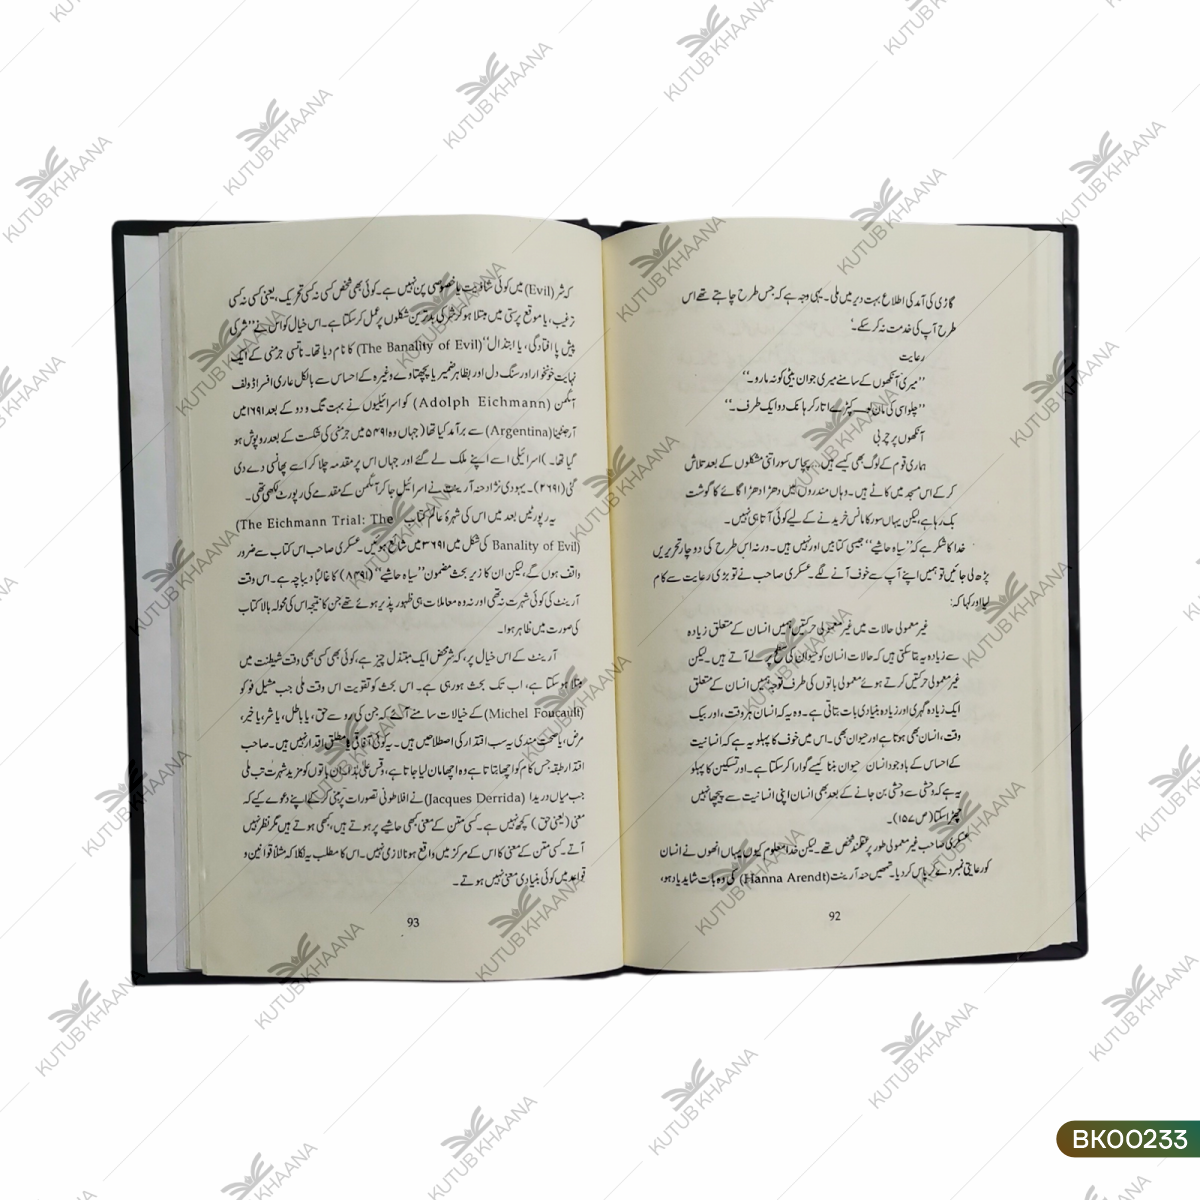 گاڑی کی آمد کی اطلاع بہت دیر میں ملی۔ یہی وجہ ہے کہ جس طرح چاہتے تھے اس
طرح آپ کی خدمت نہ کر سکے۔‘
رعایت
’’میری آنکھوں کے سامنے میری جوان بیٹی کو نہ مارو۔‘‘
’’چلو اسی کی مان لو۔ کپڑے اتار کر ہانک دو ایک طرف۔‘‘
آنکھوں پر چربی
ہماری قوم کے لوگ بھی کیسے ہیں۔ پچاس سور اتنی مشکلوں کے بعد تلاش
کر کے اس مسجد میں کاٹے ہیں۔ وہاں مندروں میں دھڑا دھڑ گائے کا گوشت
بک رہا ہے، لیکن یہاں سور کا مانس خریدنے کے لیے کوئی آتا ہی نہیں۔
خدا کا شکر ہے کہ ’’سیاہ حاشیے‘‘ جیسی کتابیں اور نہیں ہیں۔ ورنہ اس طرح کی دو چار تحریریں
پڑھ لی جائیں تو ہمیں اپنے آپ سے خوف آنے لگے۔ عسکری صاحب نے تو بڑی رعایت سے کام
لیا اور کہا کہ:
غیر معمولی حالات میں غیر معمولی حرکتیں ہمیں انسان کے متعلق زیادہ
سے زیادہ یہ بتا سکتی ہیں کہ حالات انسان کو حیوان کی سطح پر لے آتے ہیں۔ لیکن
غیر معمولی حرکتیں کرتے ہوئے معمولی باتوں کی طرف توجہ ہمیں انسان کے متعلق
ایک زیادہ گہری اور زیادہ بنیادی بات بتاتی ہے۔ وہ یہ کہ انسان ہر وقت، اور بیک
وقت، انسان بھی ہوتا ہے اور حیوان بھی۔ اس میں خوف کا پہلو یہ ہے کہ انسانیت
کے احساس کے باوجود انسان حیوان بننا کیسے گوارا کر سکتا ہے۔ اور تسکین کا پہلو
یہ ہے کہ وحشی سے وحشی بن جانے کے بعد بھی انسان اپنی انسانیت سے پیچھا نہیں
چھڑا سکتا (ص ۱۵۷)۔
عسکری صاحب غیر معمولی طور پر عقلمند شخص تھے۔ لیکن خدا معلوم کیوں یہاں انھوں نے انسان
کو رعایتی نمبر دے کر پاس کر دیا۔ تمھیں حنہ آرینٹ (Hanna Arendt) کی وہ بات شاید یاد ہو،
92
کہ شر (Evil) میں کوئی شاذونیت یا خصوصی پن نہیں ہے۔ کوئی بھی شخص کسی نہ کسی تحریک، یعنی کسی نہ کسی
ترغیب، یا موقع پرستی میں مبتلا ہو کر شر کی بدترین شکلوں پر عمل کر سکتا ہے۔ اس خیال کو اس نے ’’شر کی
پیش پا افتادگی، یا ابتذال‘‘ (The Banality of Evil) کا نام دیا تھا۔ ناتسی جرمنی کے ایک
نہایت خونخوار اور سنگ دل اور بظاہر ضمیر یا پچھتاوے وغیرہ کے احساس سے بالکل عاری افسر اڈولف
آئکمن (Adolph Eichmann) کو اسرائیلیوں نے بہت تگ و دو کے بعد ۱۶۹۱ میں
آرجنٹینا (Argentina) سے برآمد کیا تھا (جہاں وہ ۵۴۹۱ میں جرمنی کی شکست کے بعد روپوش ہو
گیا تھا۔) اسرائیلی اسے اپنے ملک لے گئے اور جہاں اس پر مقدمہ چلا کر اسے پھانسی دے دی
گئی (۲۶۹۱)۔ یہودی نژاد حنہ آرینٹ نے اسرائیل جا کر آئکمن کے مقدمے کی رپورٹ لکھی تھی۔
یہ رپورٹیں بعد میں اس کی شہرۂ عالم کتاب (The Eichmann Trial: The
Banality of Evil) کی شکل میں ۳۶۹۱ میں شائع ہوئیں۔ عسکری صاحب اس کتاب سے ضرور
واقف ہوں گے، لیکن ان کا زیر بحث مضمون ’’سیاہ حاشیے‘‘ (۸۴۹۱) کا غالباً دیباچہ ہے۔ اس وقت
آرینٹ کی کوئی شہرت نہ تھی اور نہ وہ معاملات ہی ظہور پذیر ہوئے تھے جن کا نتیجہ اس کی محولہ بالا کتاب
کی صورت میں ظاہر ہوا۔
آرینٹ کے اس خیال پر، کہ شر محض ایک مبتذل چیز ہے، کوئی بھی کسی بھی وقت شیطنت میں
مبتلا ہو سکتا ہے، اب تک بحث ہو رہی ہے۔ اس بحث کو تقویت اس وقت ملی جب مشیل فوکو
(Michel Foucault) کے خیالات سامنے آئے کہ جن کی رو سے حق، یا باطل، یا شر، یا خیر،
مرض، یا صحت مندی یہ سب اقتدار کی اصطلاحیں ہیں۔ یہ کوئی آفاقی یا مطلق اقدار نہیں ہیں۔ صاحب
اقتدار طبقہ جس کام کو اچھا بتاتا ہے وہ اچھا مان لیا جاتا ہے، وقس علیٰ ہذا۔ ان باتوں کو مزید شہرت تب ملی
جب میاں دریدا (Jacques Derrida) نے افلاطونی تصورات پر مبنی کر کے اپنے دعوے کیے کہ
معنی (یعنی حق) کچھ نہیں ہے۔ کسی متن کے معنی کبھی حاشیے پر ہوتے ہیں، کبھی ہوتے ہیں مگر نظر نہیں
آتے۔ کسی متن کے معنی کا اس کے مرکز میں واقع ہونا لازمی نہیں۔ اس کا مطلب یہ نکلا کہ مثلاً قوانین و
قواعد میں کوئی بنیادی معنی نہیں ہوتے۔
93
KUTUB KHAANA
BK00233